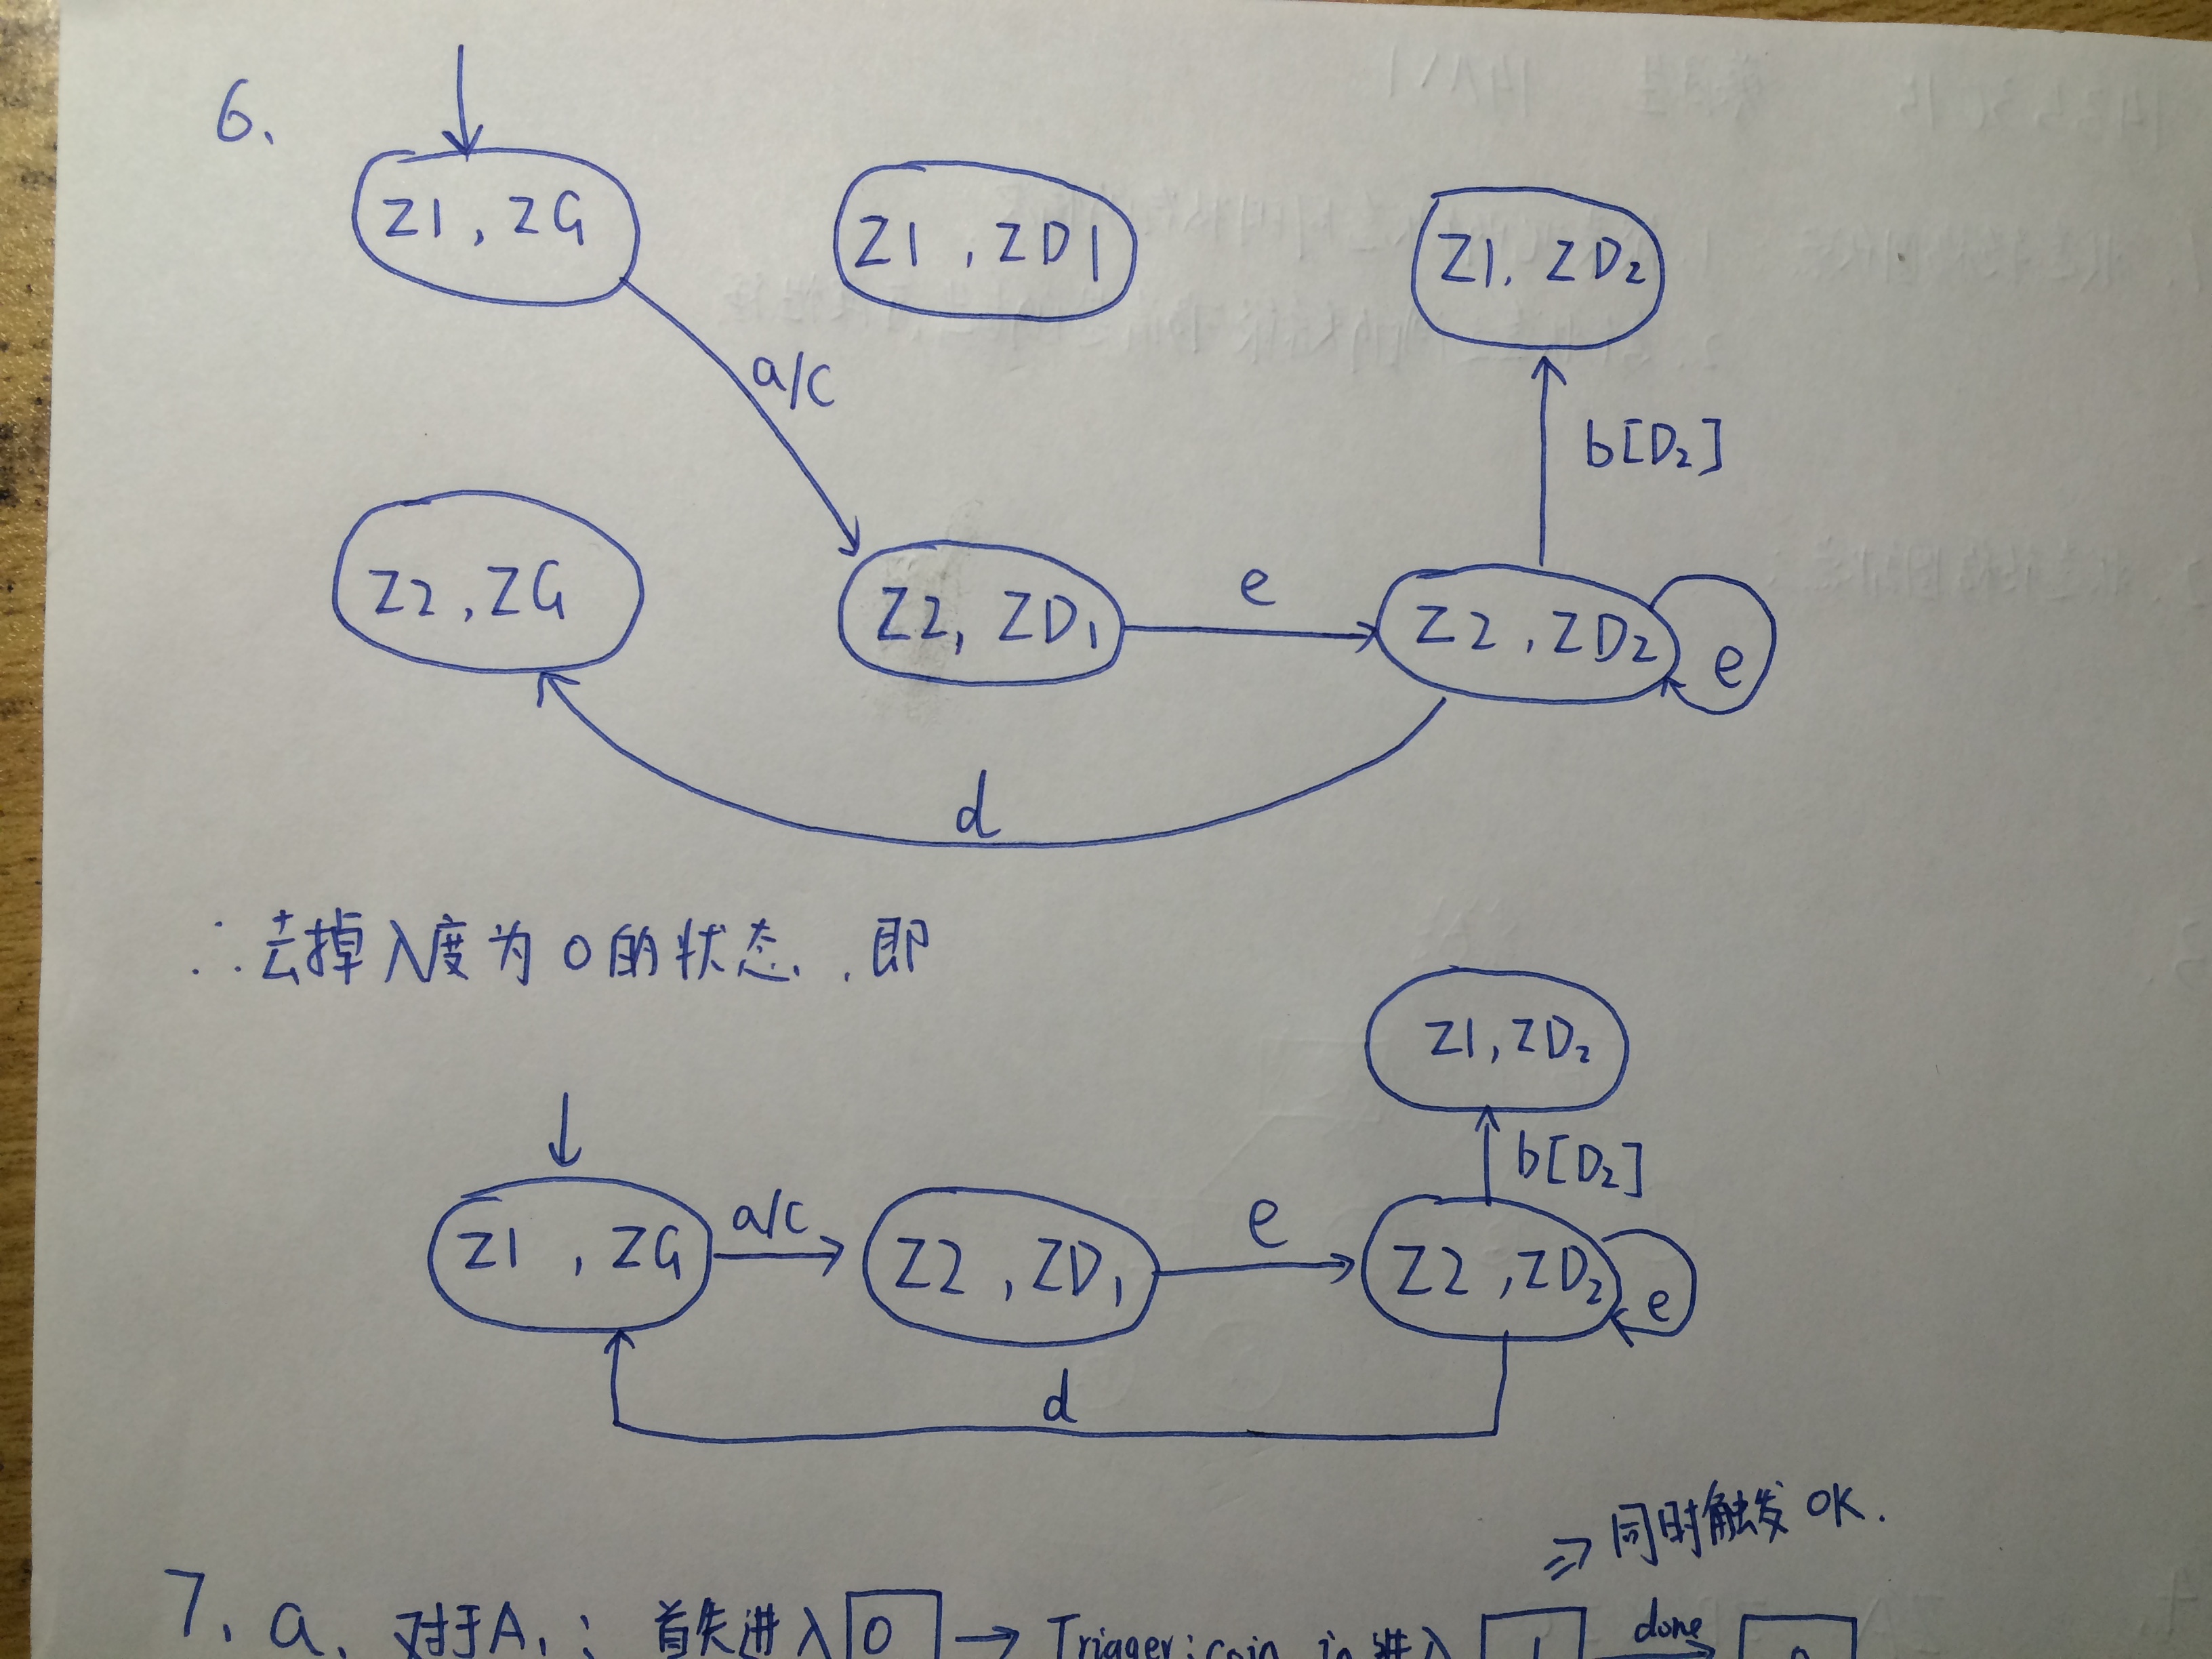 6.
Z1, ZG
Z1, ZD1
Z1. ZD₂
a/c
b[D₂]
Z2, ZG
Z2, ZD₁
e
Z2, ZD₂
e
d
∴去掉入度为0的状态.,即
Z1, ZD₂
b[D₂]
Z1, ZG
a/c
Z2, ZD₁
e
Z2, ZD₂
e
d
⇒同时触发OK.
7. a. 对于A₁: 首先进入 0 → Trigger: coin_in 进入 1 done